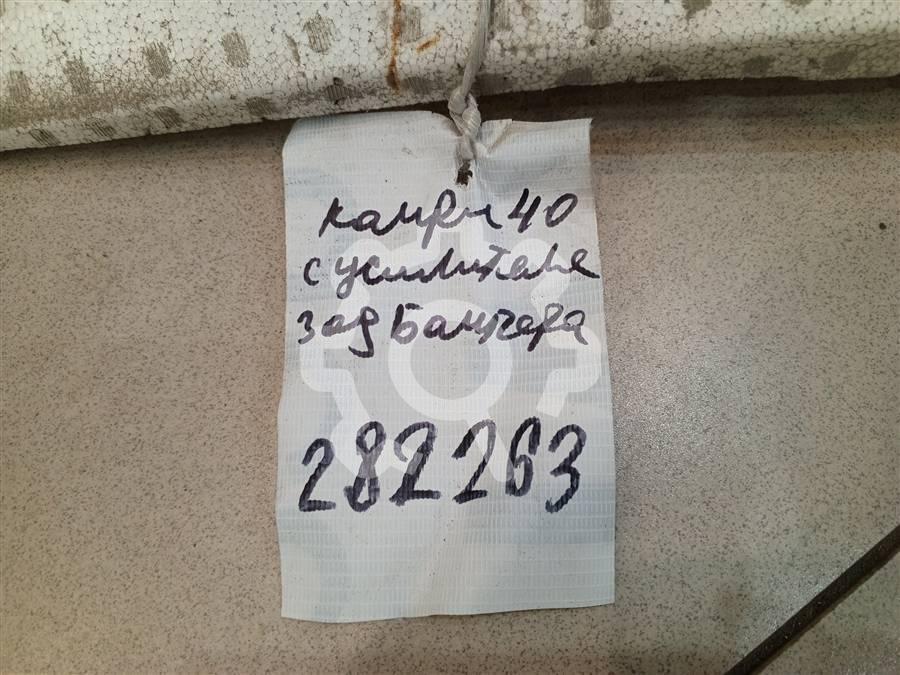 камри 40
с усилителя
зад Бампера
282263